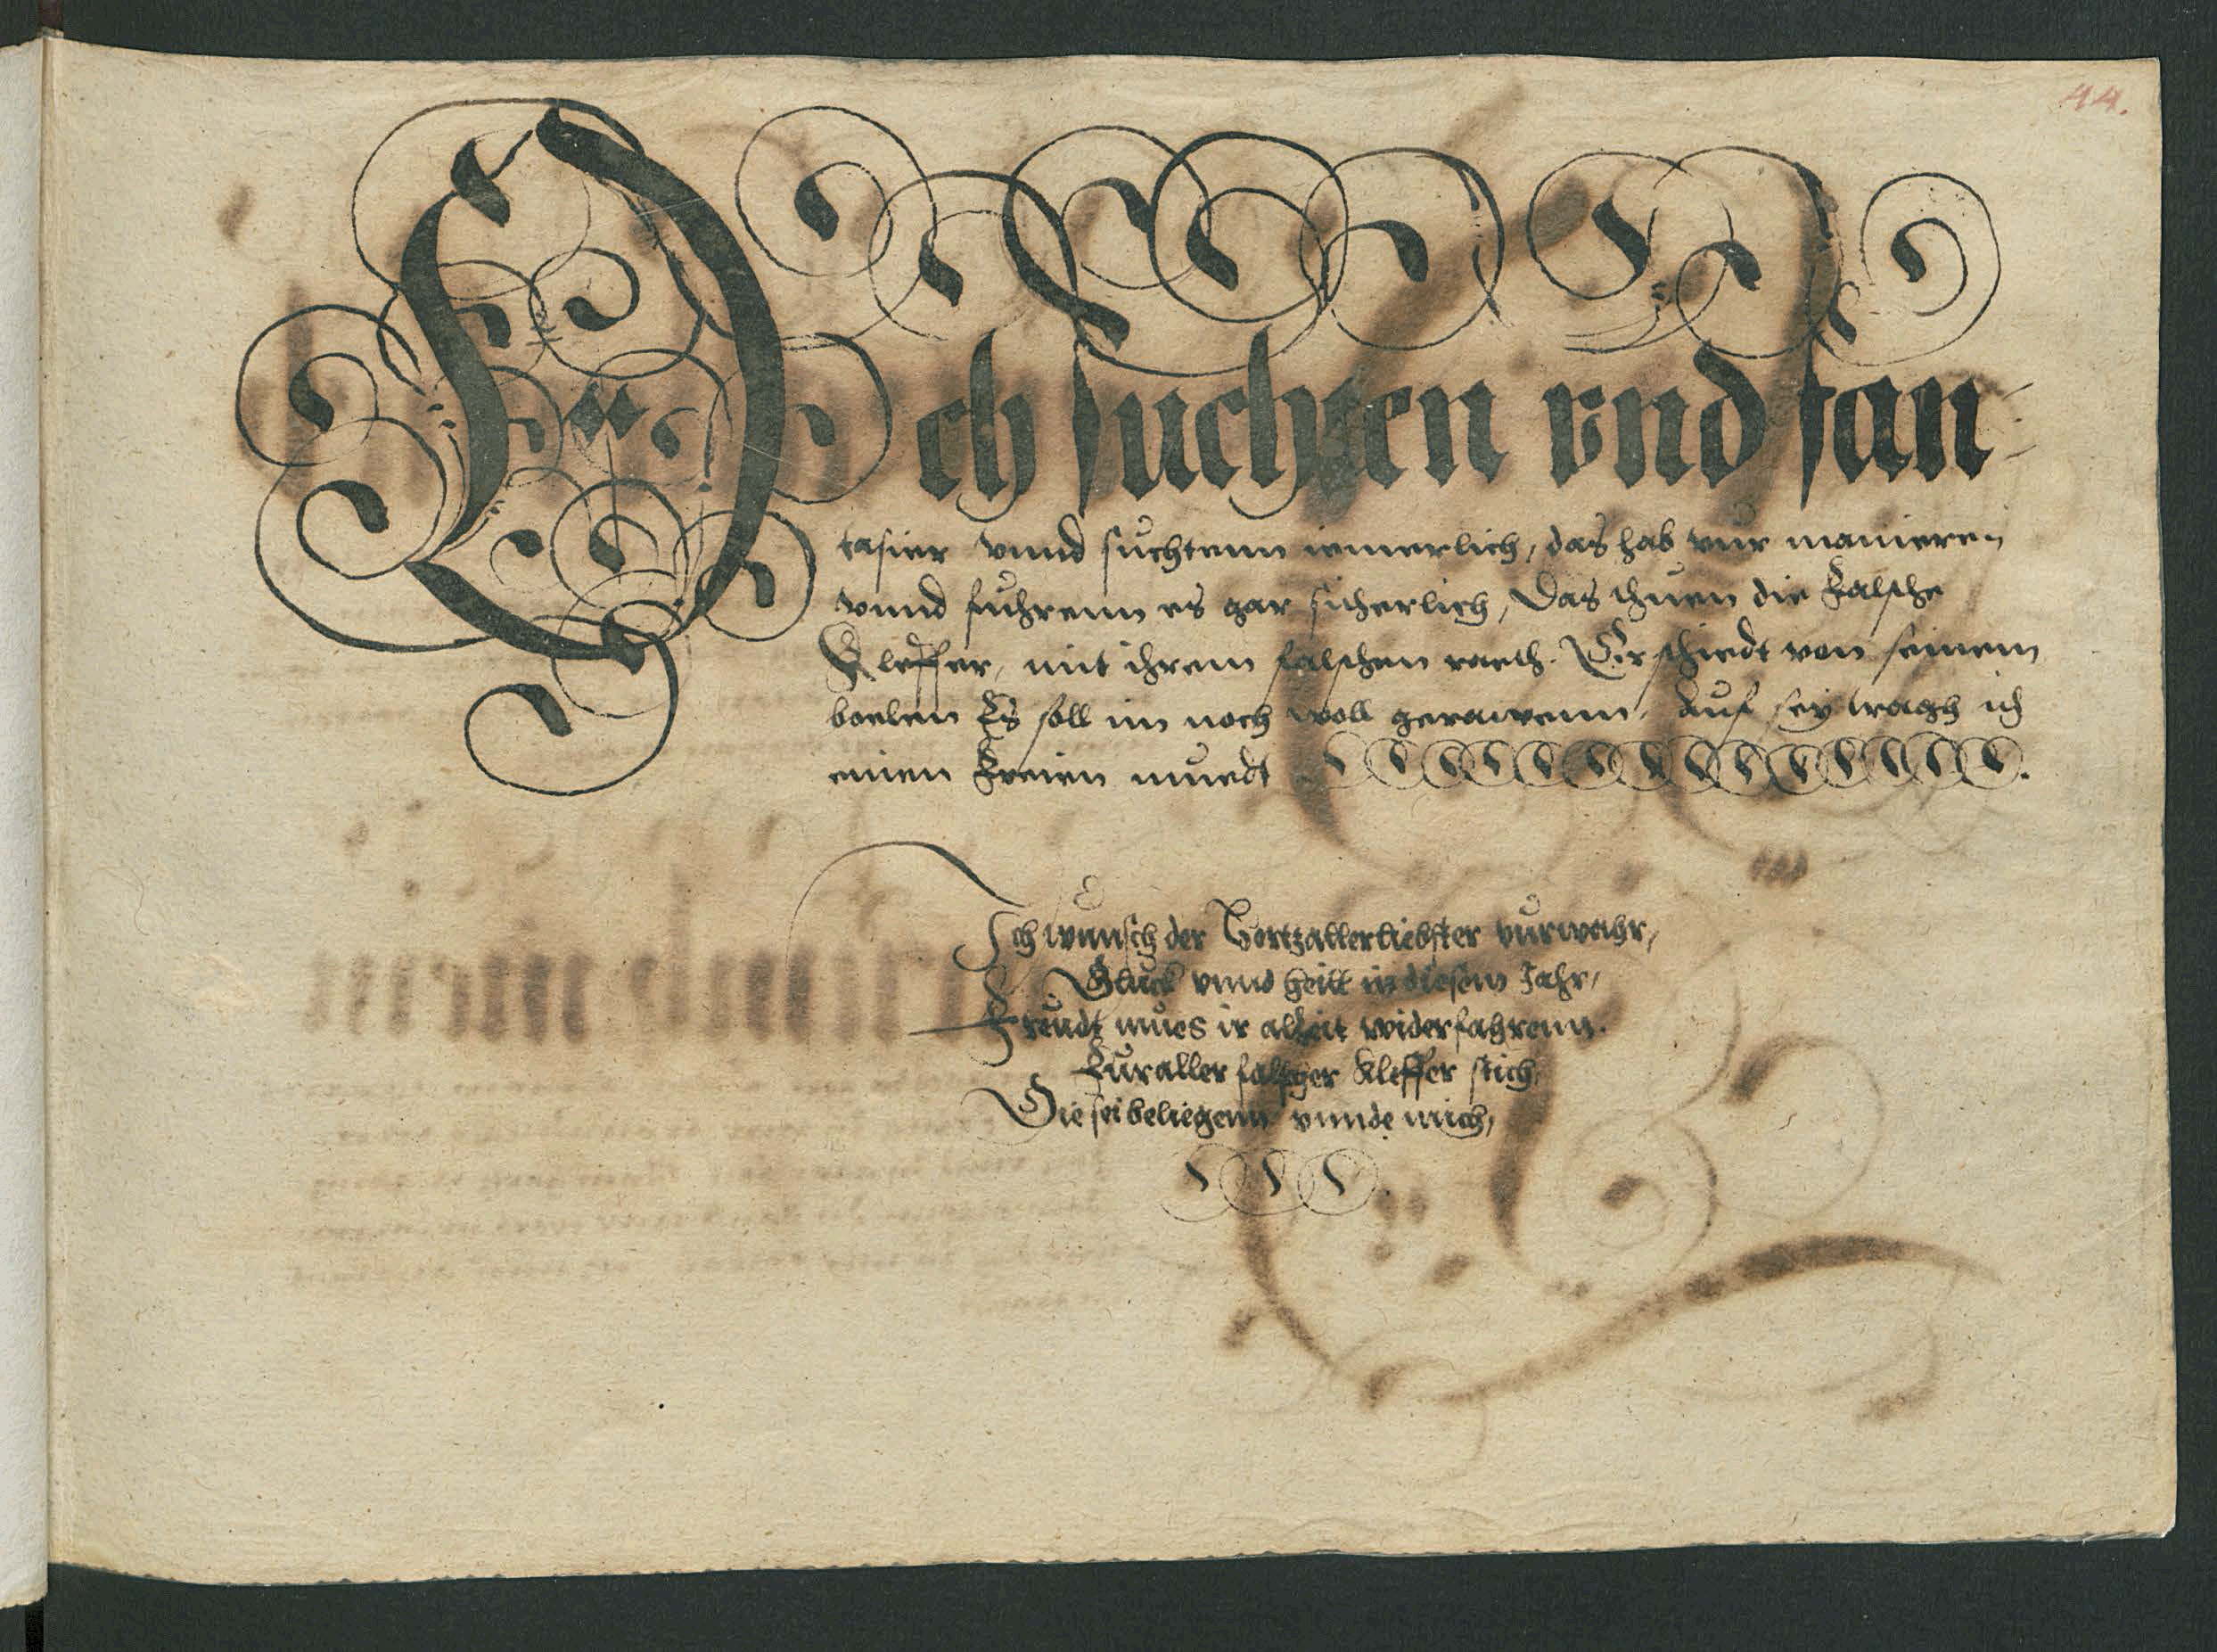 44.
Ich suchten vnd fan-
tasier vnnd suchtenn iemerlich, das hab vur manieren
vnnd fuhrenn es gar sicherlich, Das thuen die Falsche
Kleffer, mit ihrem falschen raeth. Er schiedt von seinem
boelen Es soll im noch woll gerawenn, Auf sey tragh ich
einen Freien muedt
Ich wunsch der Hertzallerliebster vurwahr,
Gluck vnnd heill in diesem Jahr,
Freudt mues ir alzeit widerfahrenn.
Fur aller falscher Kleffer stich,
Die sei beliegenn vnnde mich,